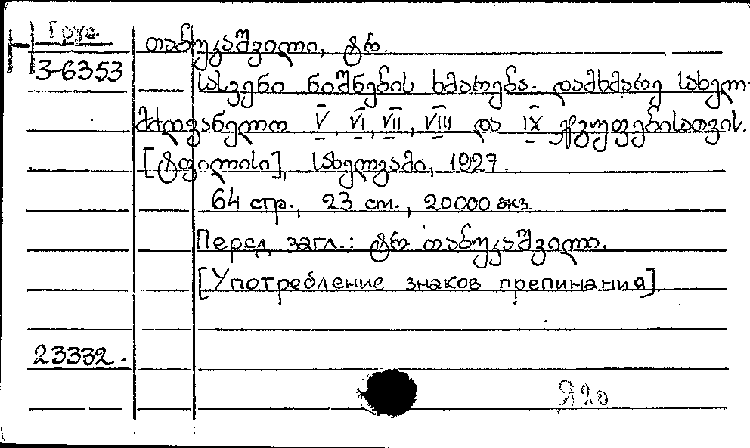 Груз.
3-6353
თანდუკაშვილი, ტრ.
სასვენი ნიშნების ხმარება. დამხმარე სახელ-
მძღვანელო V, VI, VII, VIII და IX ჯგუფებისათვის.
[ტფილისი], სახელგამი, 1927.
64 стр., 23 cm., 20000 экз.
Перед загл.: ტრ.
[Употребление знаков препинания]
23332.